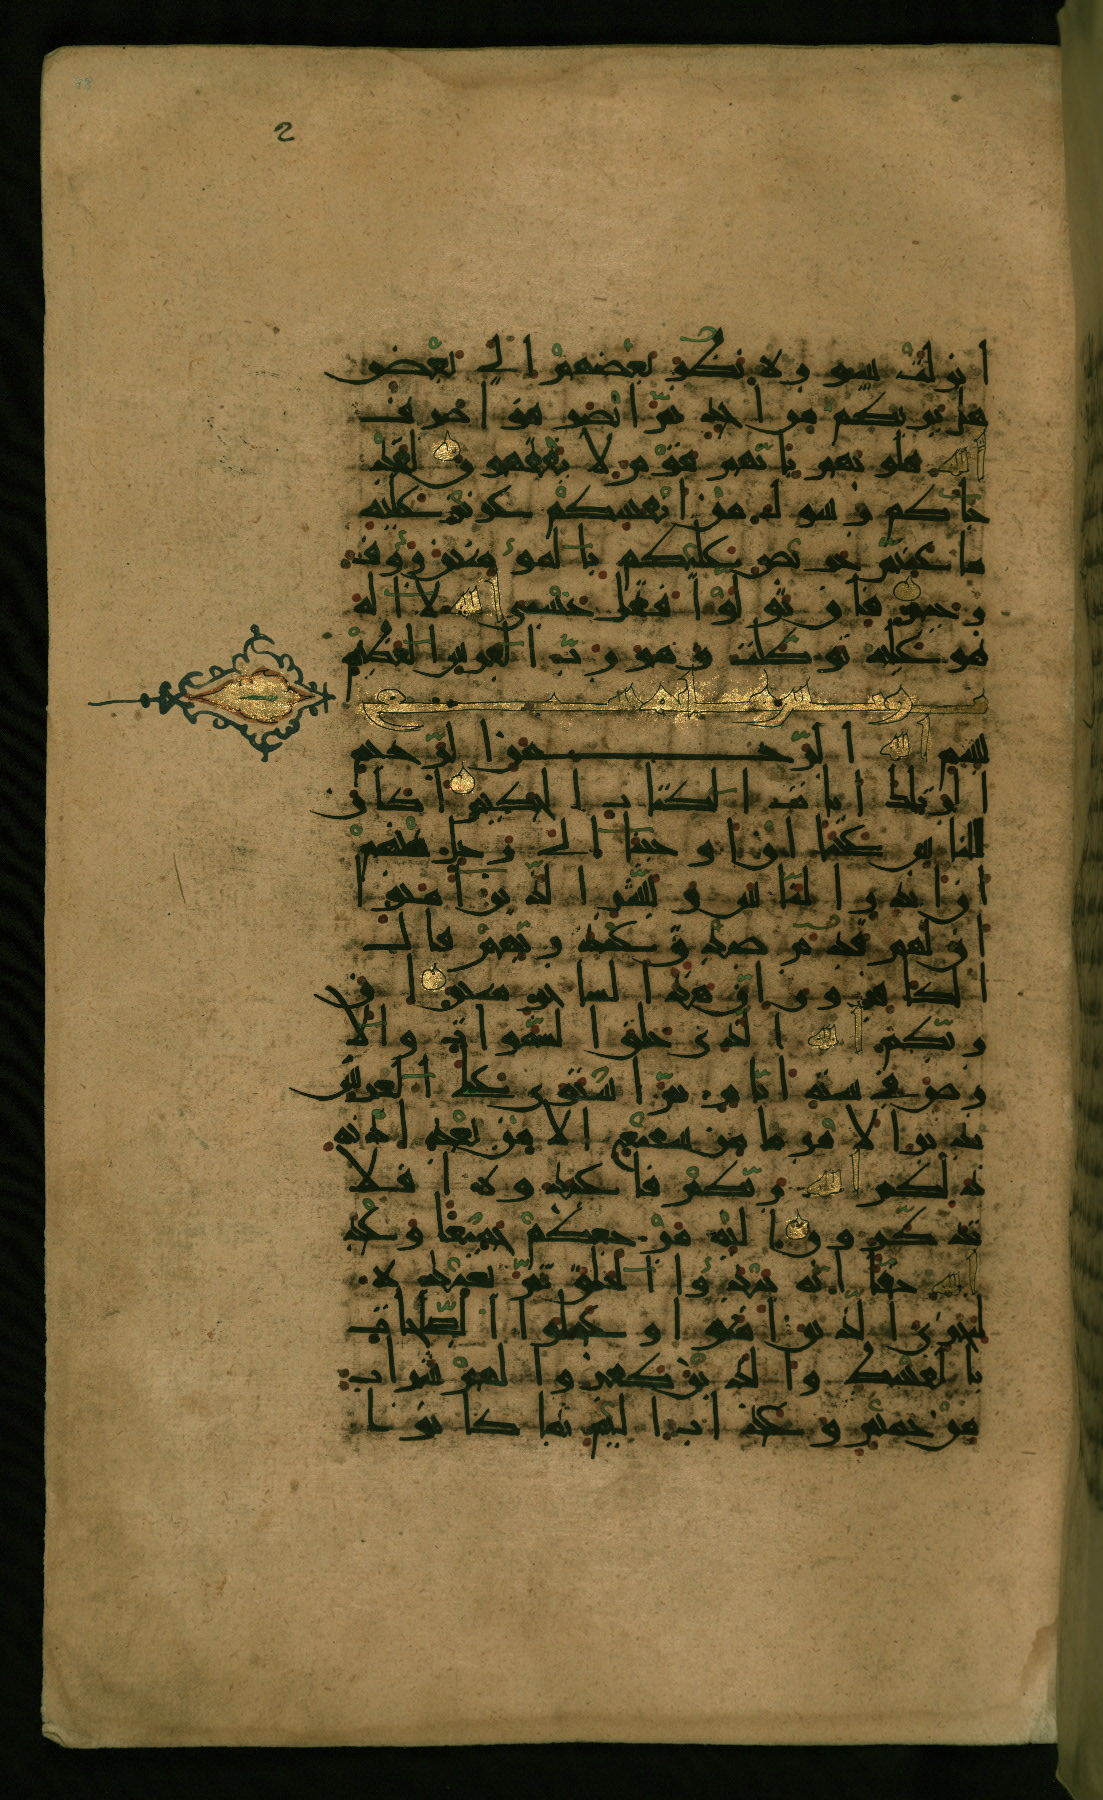 2
انزلت سورة نظر بعضهم الى بعض
هل يريكم من احد ثم انصرفوا صرف
الله قلوبهم بانهم قوم لا يفقهون لقد
جاكم رسول من انفسكم عزيز عليه
ما عنتم حريص عليكم بالمؤمنين رؤف
رحيم فان تولوا فقل حسبي الله لا اله
هو عليه توكلت وهو رب العرش العظيم
بسم الله الرحمن الرحيم
الر تلك ايات الكتاب الحكيم اكان
للناس عجبا ان اوحينا الى رجل منهم
ان انذر الناس وبشر الذين امنوا
ان لهم قدم صدق عند ربهم قال
الكافرون ان هذا لساحر مبين ان
ربكم الله الذي خلق السموات والا
رض في ستة ايام ثم استوى على العرش
يدبر الامر ما من شفيع الا من بعد اذنه
ذلكم الله ربكم فاعبدوه افلا
تذكرون اليه مرجعكم جميعا وعد
الله حقا انه يبدؤا الخلق ثم يعيده
ليجزي الذين امنوا وعملوا الصالحات
بالقسط والذين كفروا لهم شراب
من حميم وعذاب اليم بما كانوا